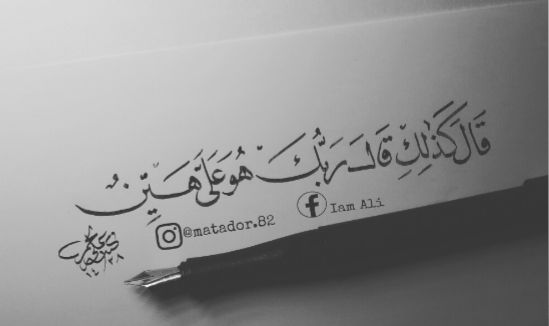 قَالَ كَذَٰلِكِ قَالَ رَبُّكَ هُوَ عَلَيَّ هَيِّنٌ
@matador.82
Iam Ali